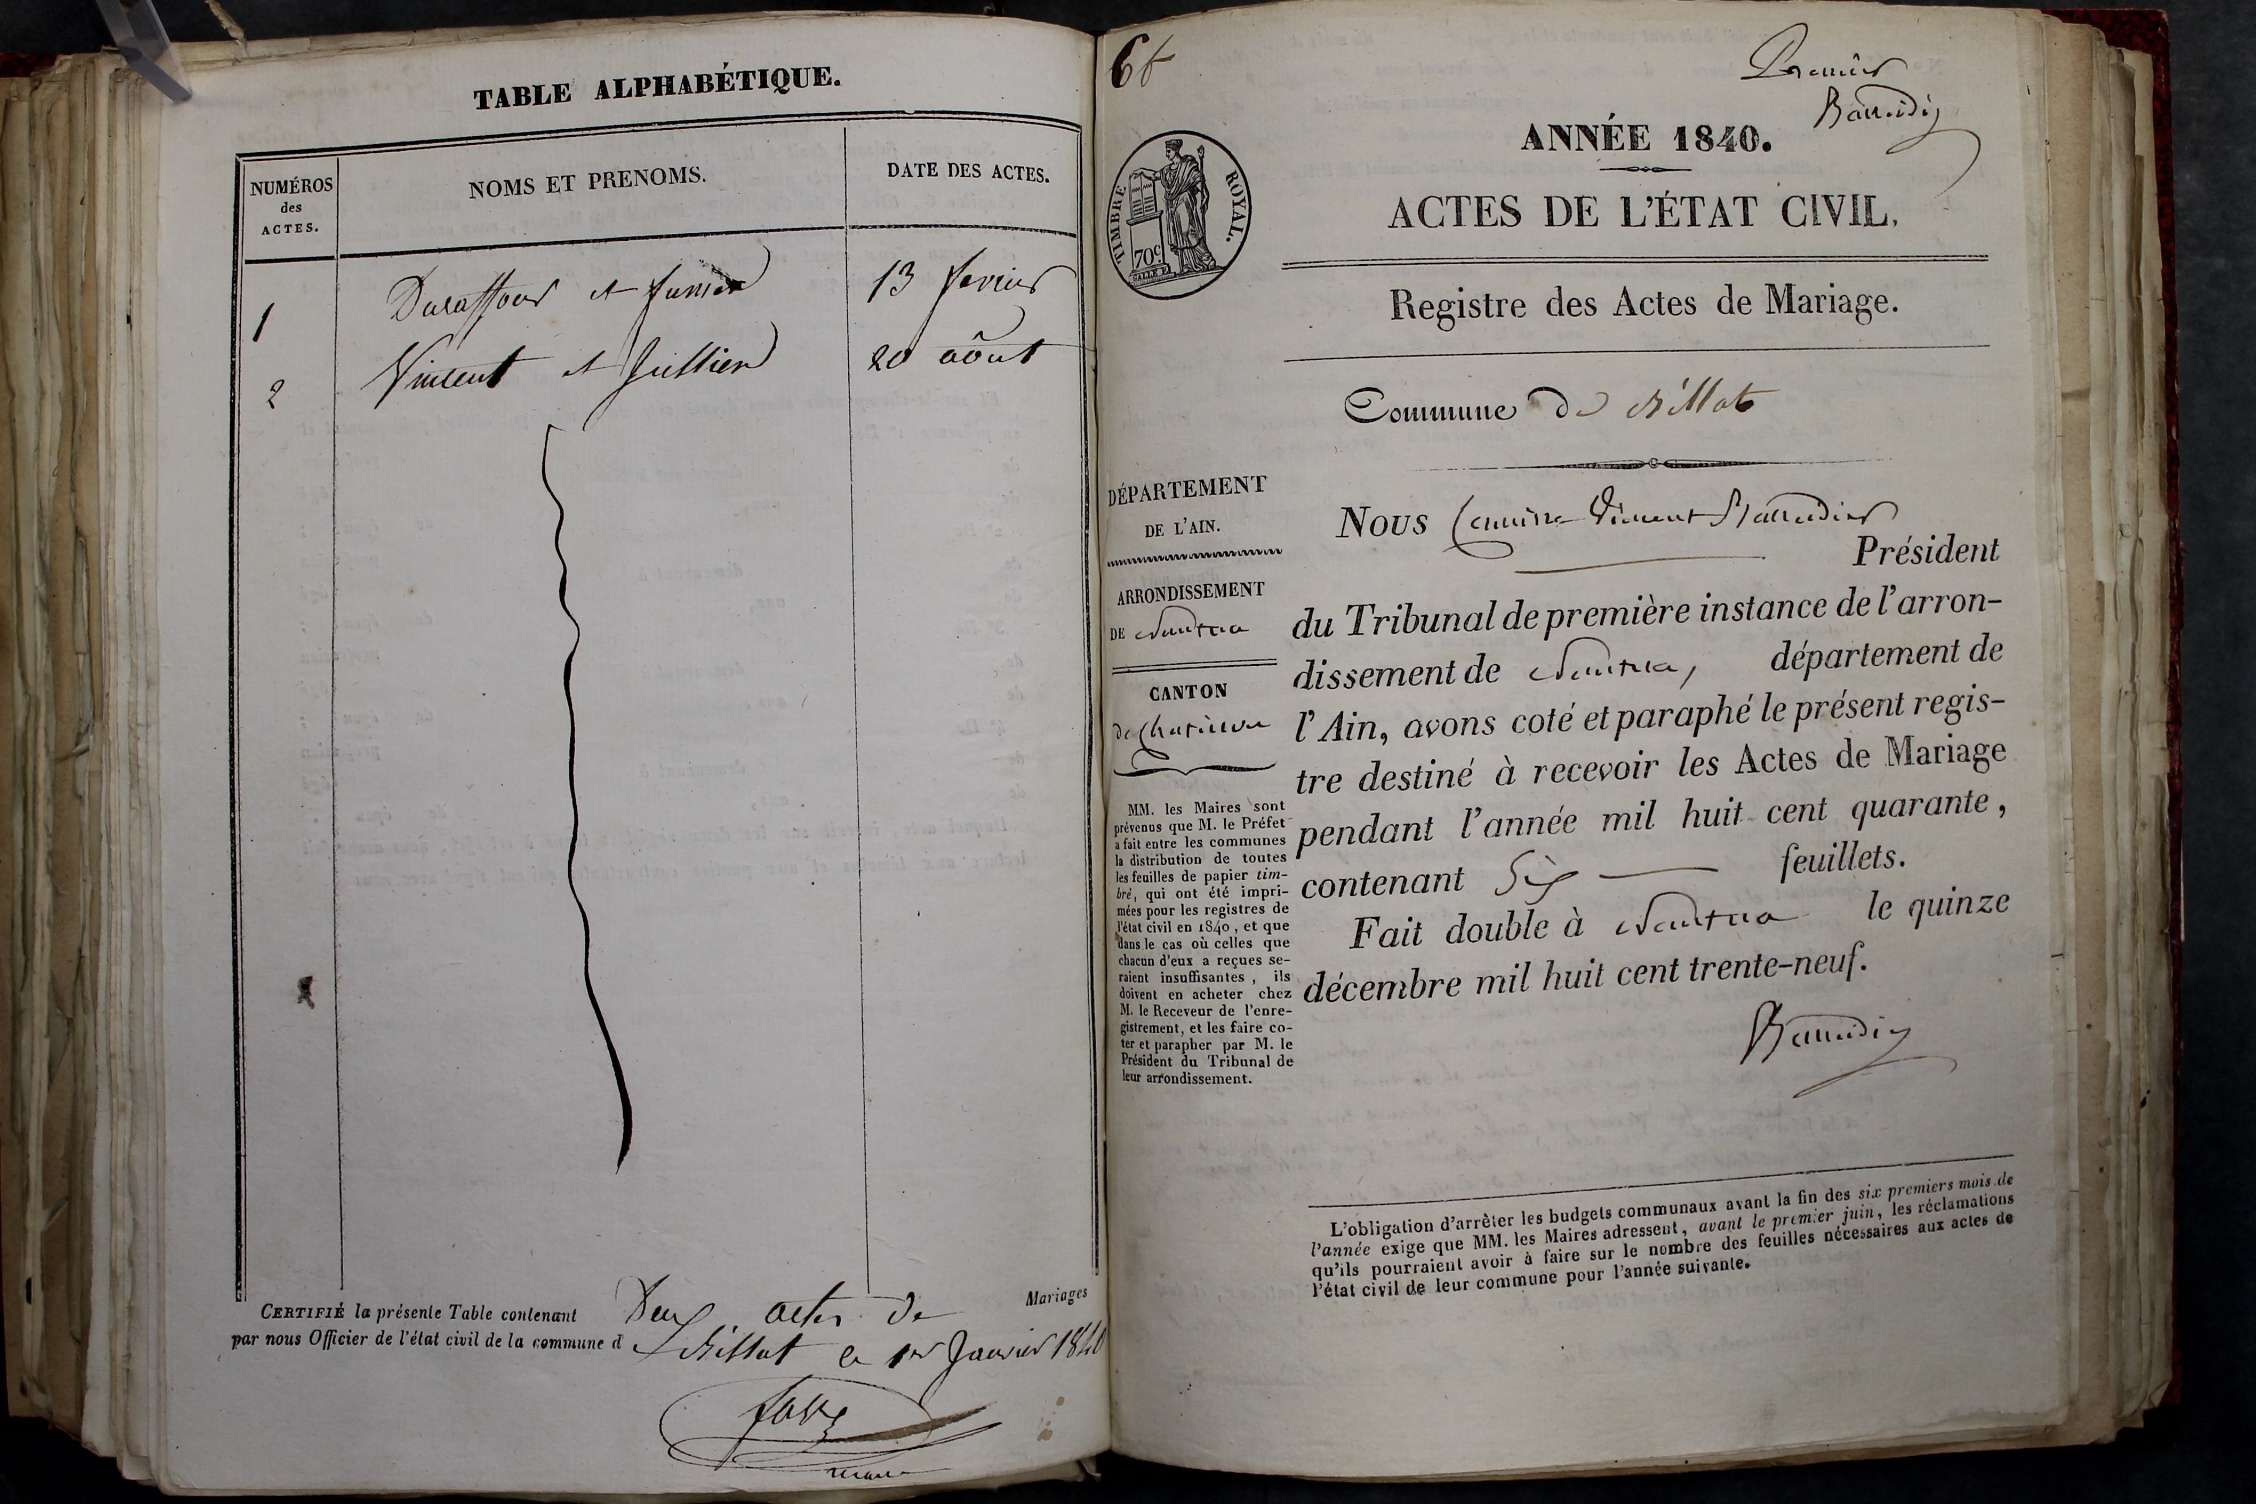 TABLE ALPHABÉTIQUE.
NUMÉROS
des
ACTES.
NOMS ET PRENOMS.
DATE DES ACTES.
1 Duraffour et 13 fevrier
2 Vincent et Jullien 20 août
CERTIFIÉ la présente Table contenant Deux actes de Mariages
par nous Officier de l'état civil de la commune d Billiat le 1er Janvier 1840
maire
6f
Premier
TIMBRE ROYAL.
70c
ANNÉE 1840.
ACTES DE L'ÉTAT CIVIL,
Registre des Actes de Mariage.
Commune De Billiat
DÉPARTEMENT
DE L'AIN.
ARRONDISSEMENT
DE Nantua
CANTON
de Chatillon
MM. les Maires sont
prévenus que M. le Préfet
a fait entre les communes
la distribution de toutes
les feuilles de papier tim-
bré, qui ont été impri-
mées pour les registres de
l'état civil en 1840, et que
dans le cas où celles que
chacun d'eux a reçues se-
raient insuffisantes, ils
doivent en acheter chez
M. le Receveur de l'enre-
gistrement, et les faire co-
ter et parapher par M. le
Président du Tribunal de
leur arrondissement.
Nous Vincent
Président
du Tribunal de première instance de l'arron-
dissement de Nantua, département de
l'Ain, avons coté et paraphé le présent regis-
tre destiné à recevoir les Actes de Mariage
pendant l'année mil huit cent quarante,
contenant Six feuillets.
Fait double à Nantua le quinze
décembre mil huit cent trente-neuf.
L'obligation d'arrêter les budgets communaux avant la fin des six premiers mois de
l'année exige que MM. les Maires adressent, avant le premier juin, les réclamations
qu'ils pourraient avoir à faire sur le nombre des feuilles nécessaires aux actes de
l'état civil de leur commune pour l'année suivante.